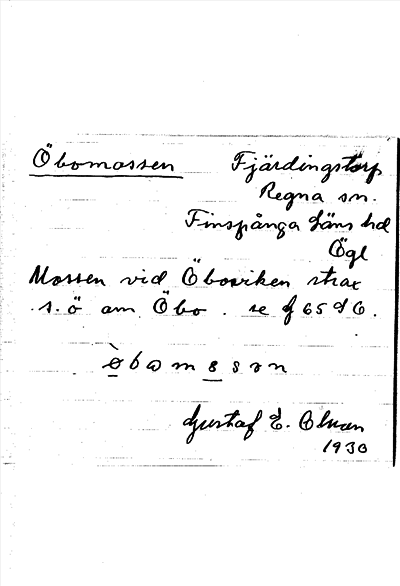 Öbomossen Fjärdingstorp
Regna sn.
Finspånga läns hd
Ögl
Mossen vid Öboviken strax
s. ö om Öbo. se f 65 d 6.
Gustaf E. Olson
1930